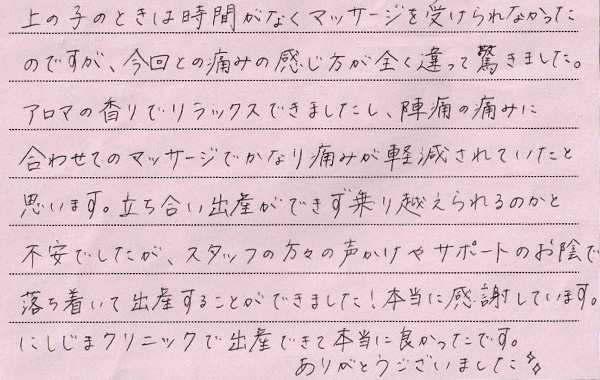 上の子のときは時間がなくマッサージを受けられなかった
のですが、今回との痛みの感じ方が全く違って驚きました。
アロマの香りでリラックスできましたし、陣痛の痛みに
合わせてのマッサージでかなり痛みが軽減されていたと
思います。立ち合い出産ができず乗り越えられるのかと
不安でしたが、スタッフの方々の声かけやサポートのお陰で
落ち着いて出産することができました！本当に感謝しています。
にしじまクリニックで出産できて本当に良かったです。
ありがとうございました